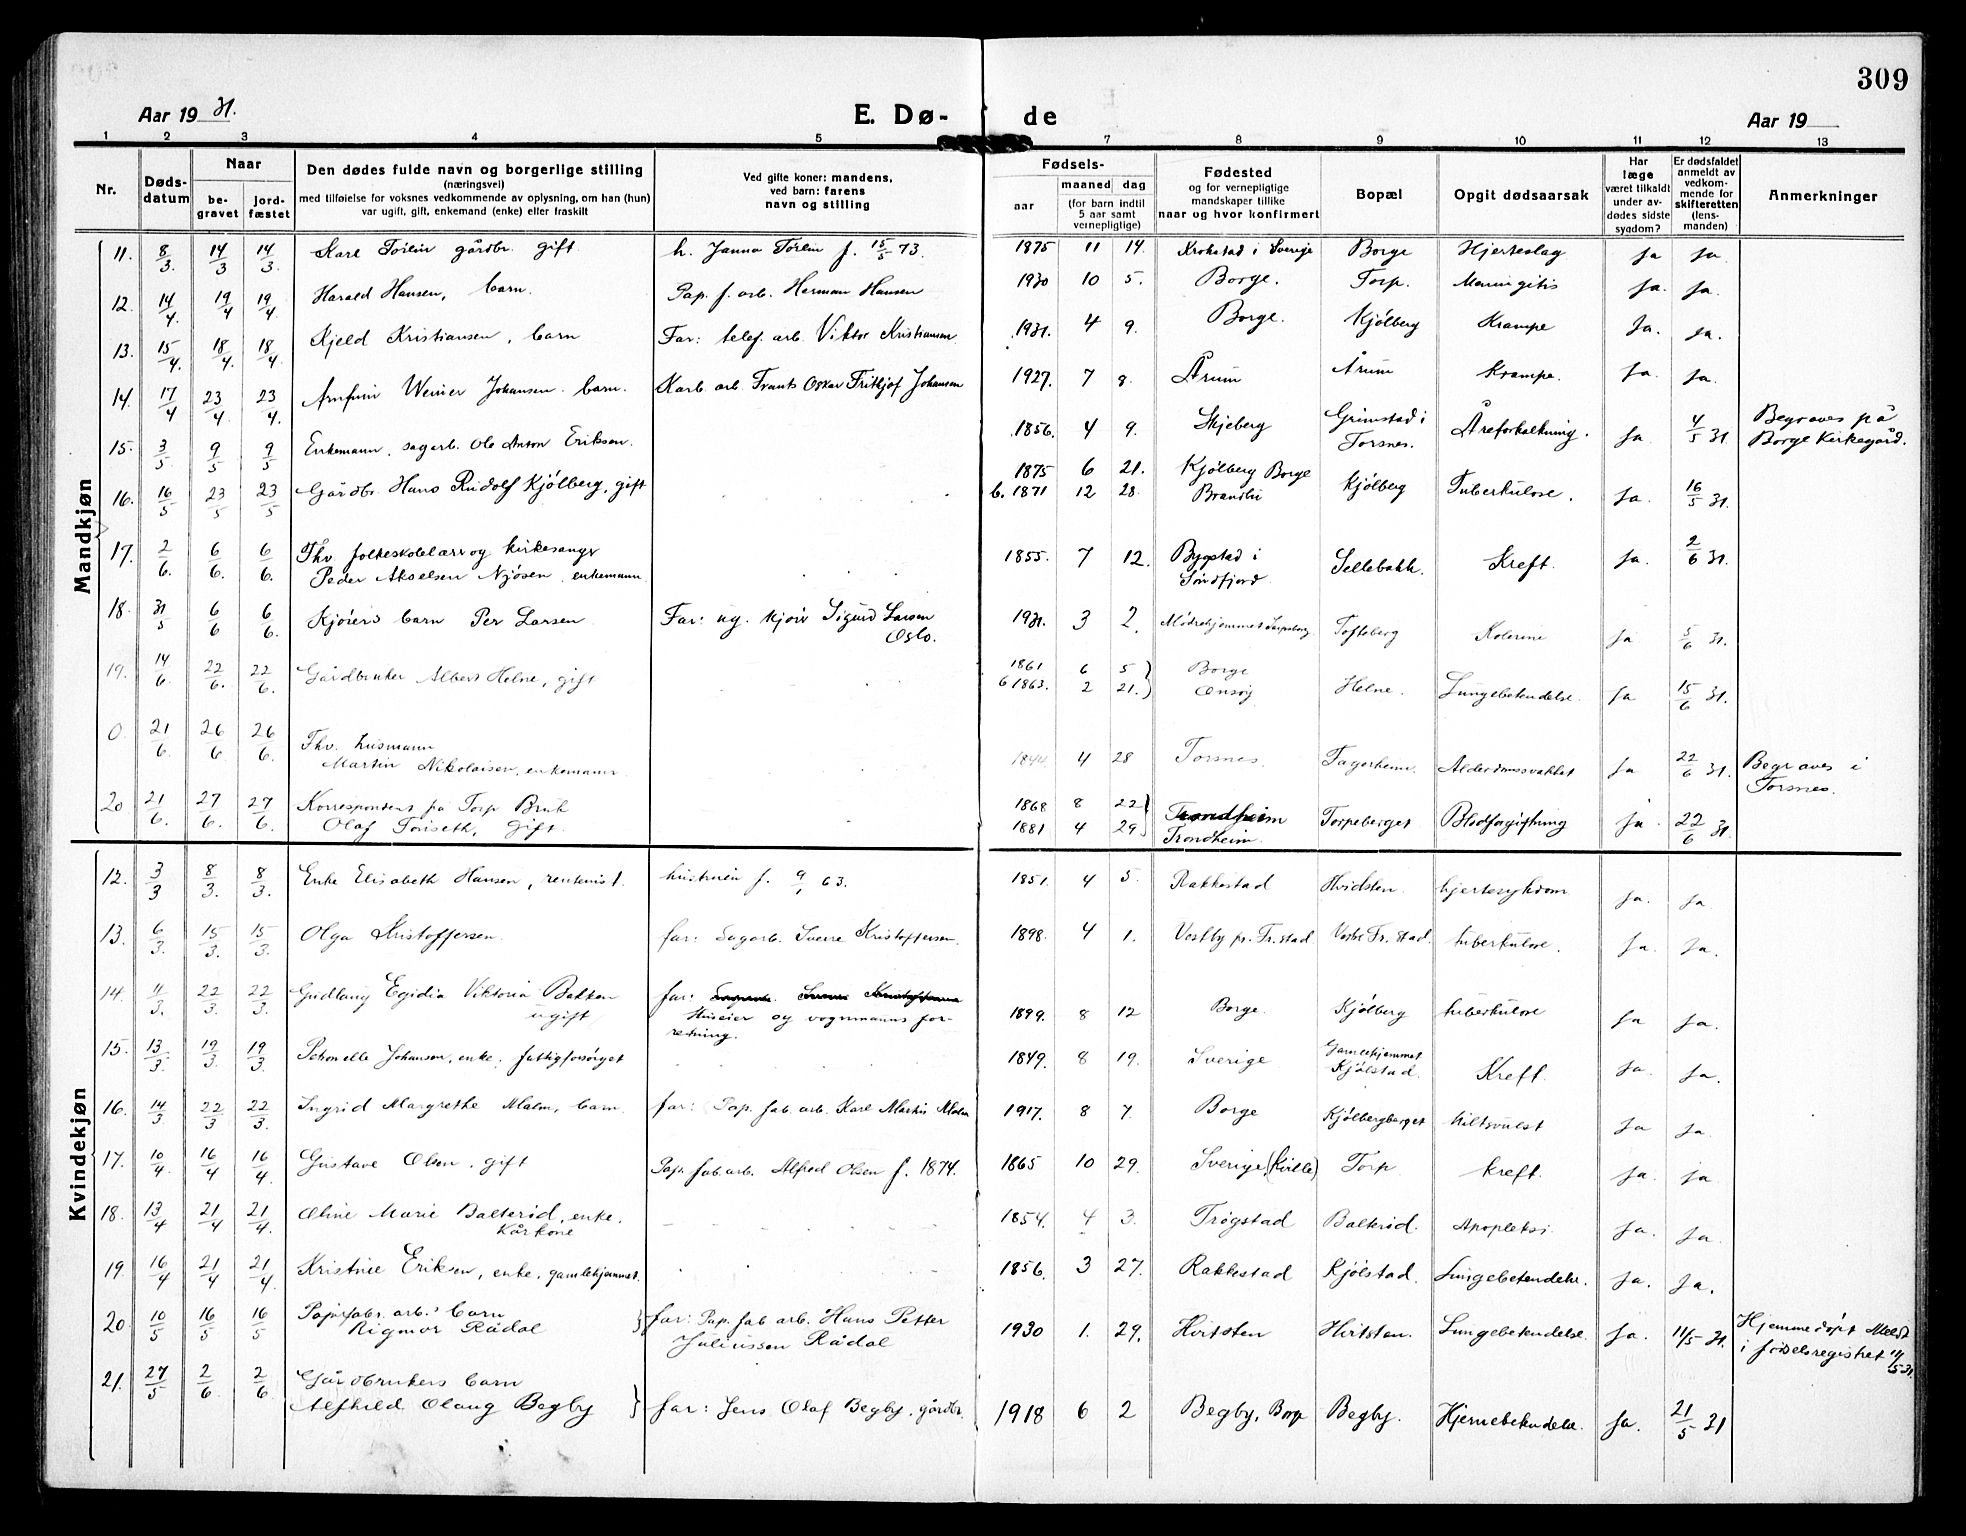 309
Aar 19 31.
E. Dø- de
Aar 19
1 2 3 4 5 7 8 9 10 11 12 13
Nr.
Døds-
datum
Naar
be-
gravet
jord-
fæstet
Den dødes fulde navn og borgerlige stilling
(næringsvei)
med tilføielse for voksnes vedkommende av oplysning, om han (hun)
var ugift, gift, enkemand (enke) eller fraskilt
Ved gifte koner: mandens,
ved barn: farens
navn og stilling
Fødsels-
aar
maaned dag
(for barn indtil
5 aar samt
vernepligtige)
Fødested
og for vernepligtige
mandskaper tillike
naar og hvor konfirmert
Bopæl
Opgit dødsaarsak
Har
læge
været tilkaldt
under av-
dødes sidste
sygdom?
Er dødsfaldet
anmeldt av
vedkom-
mende for
skifteretten
(lens-
manden)
Anmerkninger
Mandkjøn
11. 8/3. 14/3 14/3. Karl gårdbr. gift h. Janna f. 15/5 73. 1875 11 14. Krokstad i Sverige Borge Hjerteslag Ja Ja.
12. 14/4. 19/4 19/4. Harald Hansen, barn. Pap. f. arb. Herman Hansen 1930 10 5. Borge. Torp. Meningitis Ja. Ja.
13. 15/4. 18/4. 18/4. Kjeld Kristiansen, barn Far: telef. arb. Viktor Kristiansen. 1931. 4 9. Borge. Kjølberg Krampe Ja. Ja.
14. 17/4 23/4. 23/4. Arnfinn Werner Johansen. barn. Karb. arb. Frants Oskar Fritkjof Johansen 1927. 7 8. Årum Årum Krampe. Ja. Ja.
15. 3/5. 9/5 9/5 Enkemann, sagarb. Ole Anton Eriksen. 1856. 4 9. Skjeberg Grimstad i
Torsnes. Åreforkalkning. Ja. 4/5 31. Begraves på
Borge Kirkegård.
16. 16/5 23/5 23/5 Gårdbr. Hans Rudolf Kjølberg, gift 1875 6 21. Kjølberg Borge
b. 1871 12 28. Kjølberg Tuberkulose. Ja. 16/5 31.
17. 2/6. 6/6. 6/6. Fhv. folkeskolelærer og kirkesanger
Peder Akselsen Njøsen, enkemann. 1855. 7 12. Bygstad i
Søndfjord Sellebakk. Kreft. Ja. 2/6 31.
18. 31/5 6/6 6/6. Kjørers barn Per Larsen Far: ug. kjører Sigurd Larsen
Oslo. 1931. 3 2. Mødrehjemmet Sarpsborg Tofteberg Kolerine Ja 5/6 31.
19. 14/6. 22/6. 22/6. Gårdbruker Albert Helne, gift 1861 6 5 Borge
b 1863. 2 21. Onsøy Helne. Lungebetendelse. Ja 15/6 31.
0 21/6. 26/6 26/6. Fhv. husmann
Martin Nikolaisen, enkemann. 1844 4 28 Torsnes. Fagerheim. Alderdomssvakhet Ja 22/6 31. Begraves i
Torsnes.
20 21/6. 27/6. 27/6. Korrespondent på Torp Bruk
Olaf Tønseth, gift. 1868 8 22 Trondheim
1881 4 29 Trondheim. Torpeberget Blodforgiftning Ja. 22/6 31.
Kvindekjøn
12. 3/3 8/3. 8/3. Enke Elisabeth Hansen, rentenist. f. 9/1 63. 1851. 4 5. Rakkestad Hvidsten. hjertesykdom Ja. Ja
13. 6/3. 15/3. 15/3. Olga Kristoffersen. far: Sagarb. Sverre Kristoffersen. 1898. 4 1. Vestby pr. Fr.stad Fr. stad. tuberkulose. Ja. Ja.
14. 11/3. 22/3. 22/3. Gudlaug Egidia Viktoria Bakken
ugift far: Sagarb. Sverre Kristoffersen
Huseier og vognmanns for-
retning. 1899. 8 12 Borge. Kjølberg tuberkulose Ja Ja.
15. 13/3. 19/3 19/3. Petronelle Johansen, enke, fattigforsørget 1849. 8 19. Sverige Gamlehjemmet
Kjølstad. Kreft. Ja. Ja.
16. 14/3 22/3 22/3. Ingrid Margrethe Malm, barn. far: Pap. fab. arb. Karl Martin Malm 1917. 8 7. Borge Kjølbergberget Ja Ja.
17. 10/4. 16/4 16/4. Gustave Olsen, gift Pap. fab. arb. Alfred Olsen f. 1874. 1865 10 29. Sverige (Kville) Torp kreft. Ja. Ja
18. 13/4 21/4 21/4. Oline Marie Balterød, enke,
Kårkone 1854. 4 3. Trøgstad Balterød. Apopleksi. Ja. Ja.
19. 16/4 21/4 21/4. Kristine Eriksen, enke, gamlehjemmet. 1856. 3 27. Rakkestad Kjølstad. Lungebetendelse. Ja. Ja.
20 10/5 16/5 16/5 Papirfabr. arb. barn
Rigmor Rådal far: Pap. fab arb. Hans Petter
Juliussen Rådal 1930 1. 29. Hvitsten Hvitsten. Lungebetendelse. Ja. 11/5 31. Hjemmedøpt Meldt
i fødselsregistret 11/5 31.
21. 27/5 2/6 2/6 Gårdbrukers barn
Alfhild Olaug Begby far: Jens Olaf Begby, gårdbr. 1918 6 2 Begby, Borge Begby. Hjernebetendelse. Ja. 21/5 31